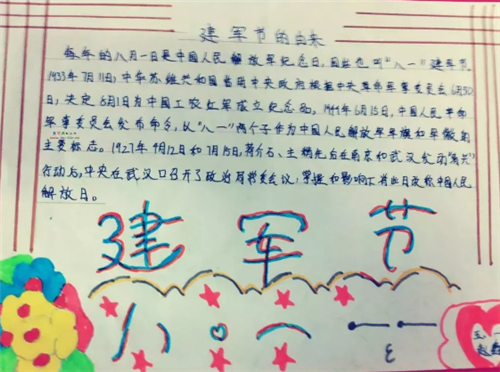 建军节的由来
每年的八月一日是中国人民解放军纪念日,因此也叫"八一"建军节
1933年7月11日,中华苏维共和国临时中央政府根据中央革命军事委员会6月30
日,决定8月1日为中国工农红军成立纪念日。1949年6月15日,中国人民革命
军事委员会发布命令,以"八一"两个字作为中国人民解放军军旗和军徽的
主要标志。1927年4月12日和7月15日,蒋介石、汪精先后在南京和武汉发动"清共"
行动后,中央在武汉口召开了政治局常委会议,掌握和影响下 将此日改称中国人民
解放日。
建军节
八一